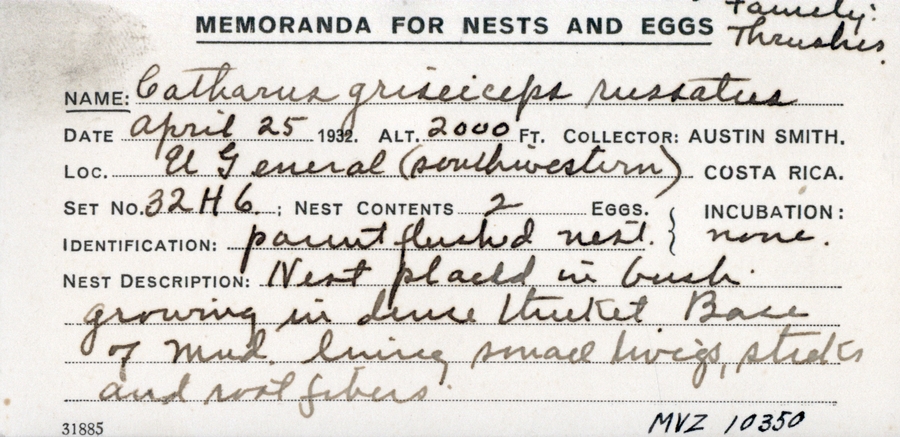 Family:
Thrushes.
MEMORANDA FOR NESTS AND EGGS
NAME: Catharus griseiceps russatus
DATE April 25 1932. ALT. 2000 FT. COLLECTOR: AUSTIN SMITH.
LOC. El General (southwestern) COSTA RICA.
SET NO. 32H6. ; NEST CONTENTS 2 EGGS. { INCUBATION:
IDENTIFICATION: parent flushd nest. none.
NEST DESCRIPTION: Nest placed in bush
growing in dense thicket Base
of mud. lining small twigs, sticks
and root fibers.
31885 MVZ 10350